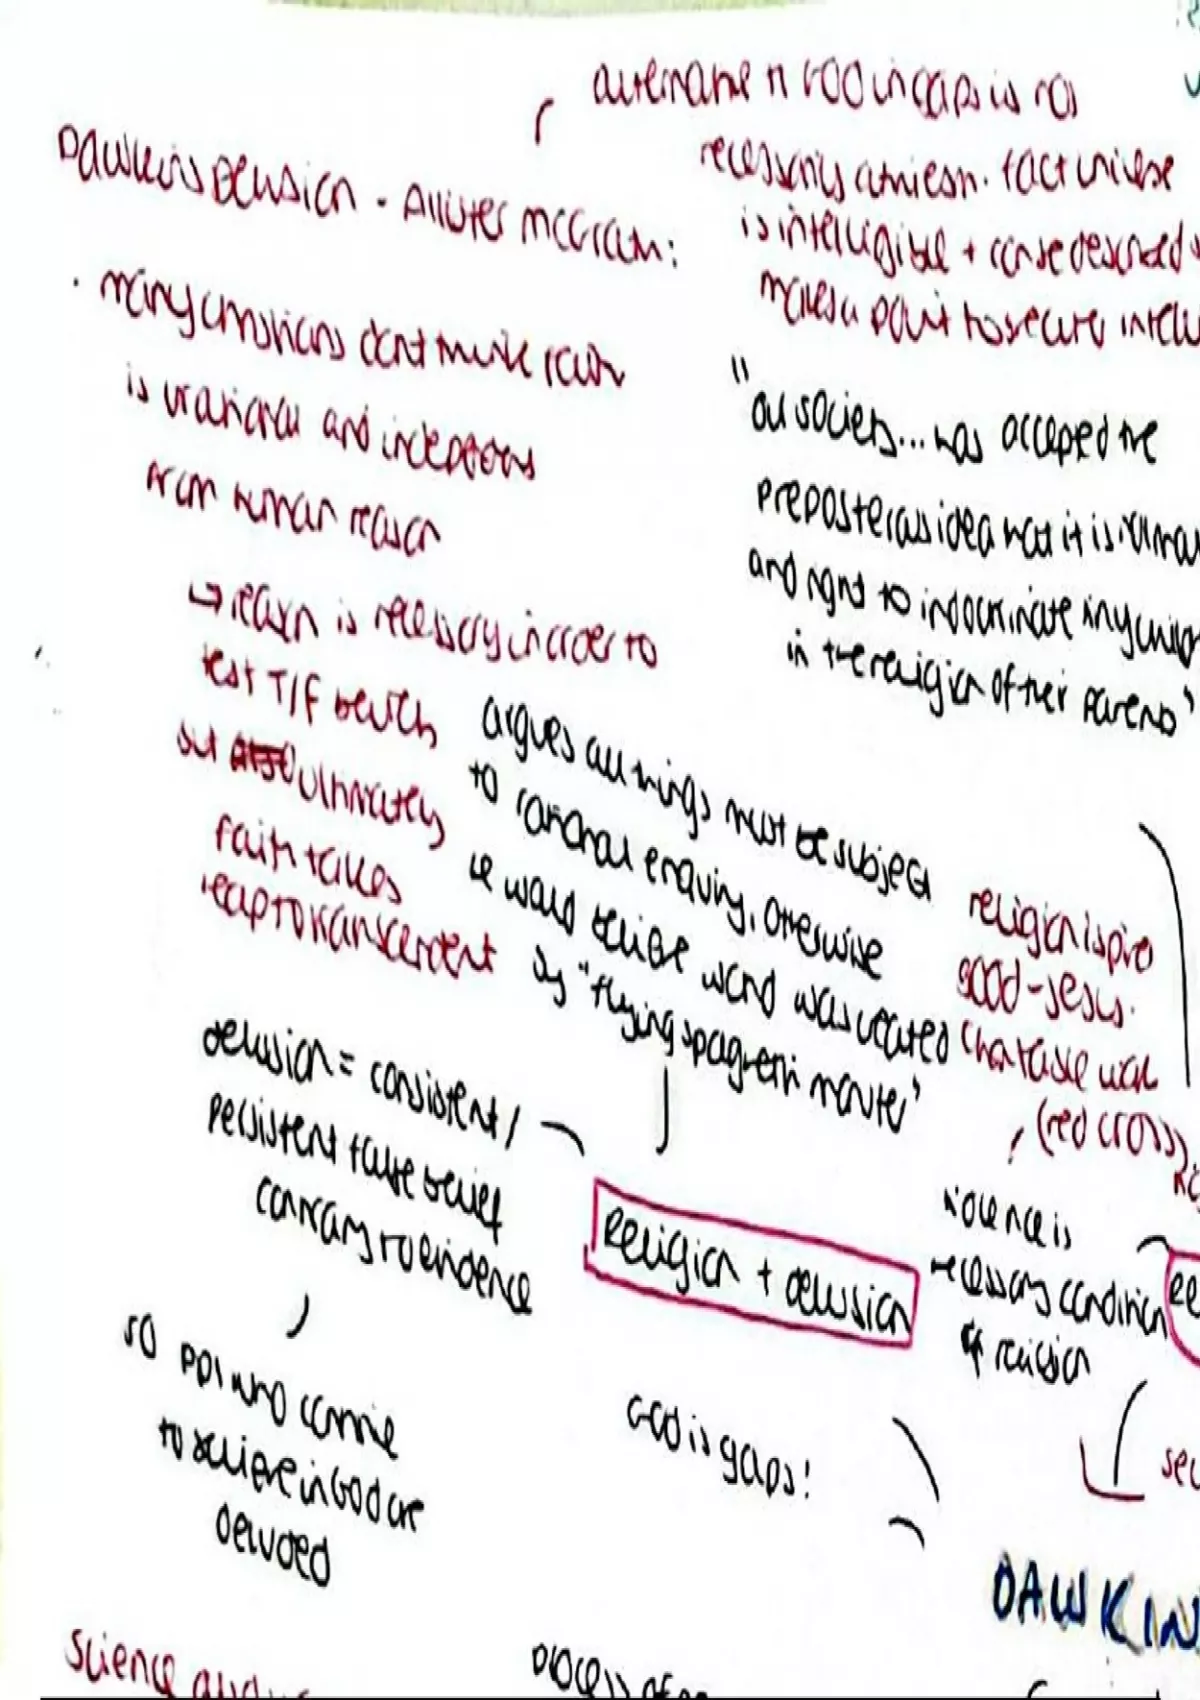 alternative to God in gaps is not
necessarily atheism. fact universe
is intelligible + can be described
makes a point to secure
Dawkins Delusion - Allister McGrath:
· many christians dont think faith
is irrational and independent
from human reason
↳ reason is necessary in order to
test T/F beliefs
but ultimately
faith takes
leap to transcendent
"our society... has accepted the
preposterous idea that it is normal
and right to indoctrinate tiny
in the religion of their parents"
argues all things must be subject
to rational enquiry, otherwise
we would believe world was created
by "flying spaghetti monster"
religion
good - Jesus.
charitable work
(red cross)
delusion = consistent /
persistent false belief
contrary to evidence
so ppl who continue
to believe in God are
deluded
Religion + delusion
violence is
necessary condition
of religion
God is gaps!
DAWKIN
science
process of